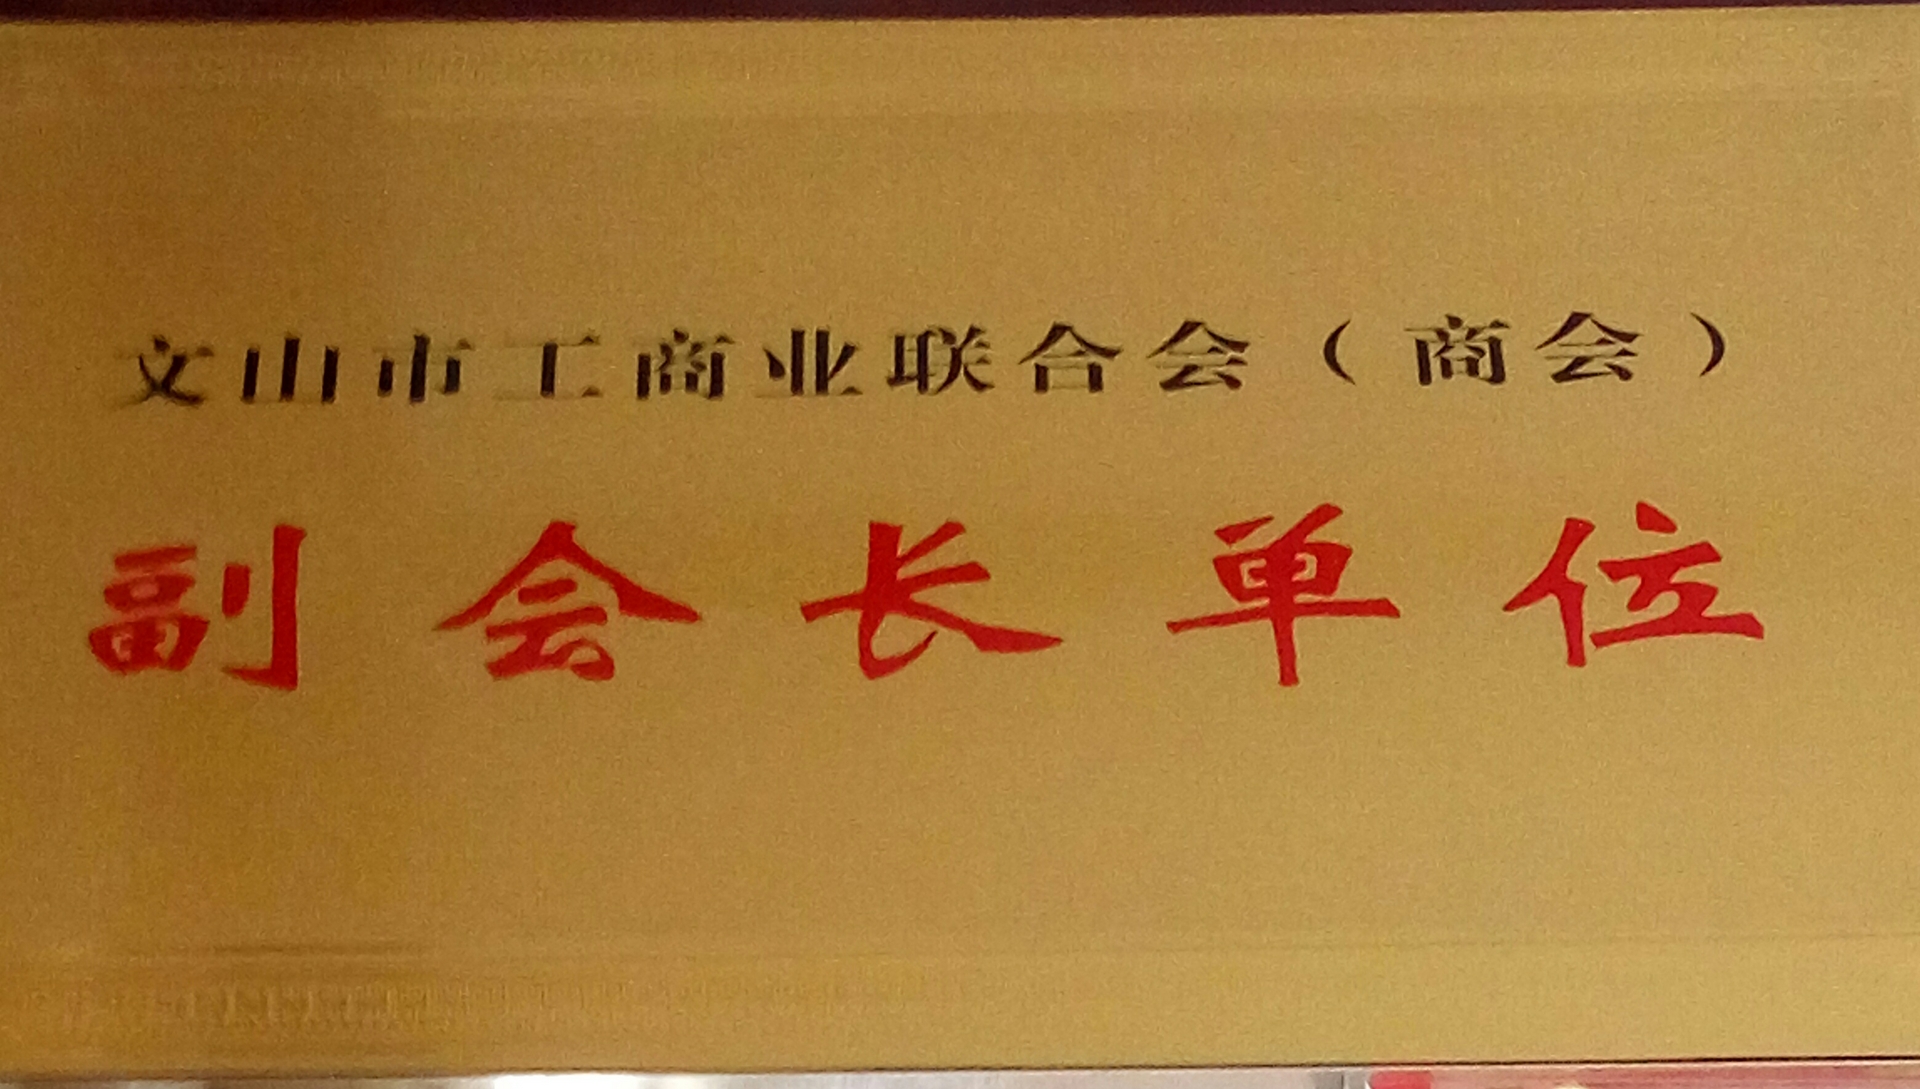 文山市工商业联合会（商会）
副会长单位